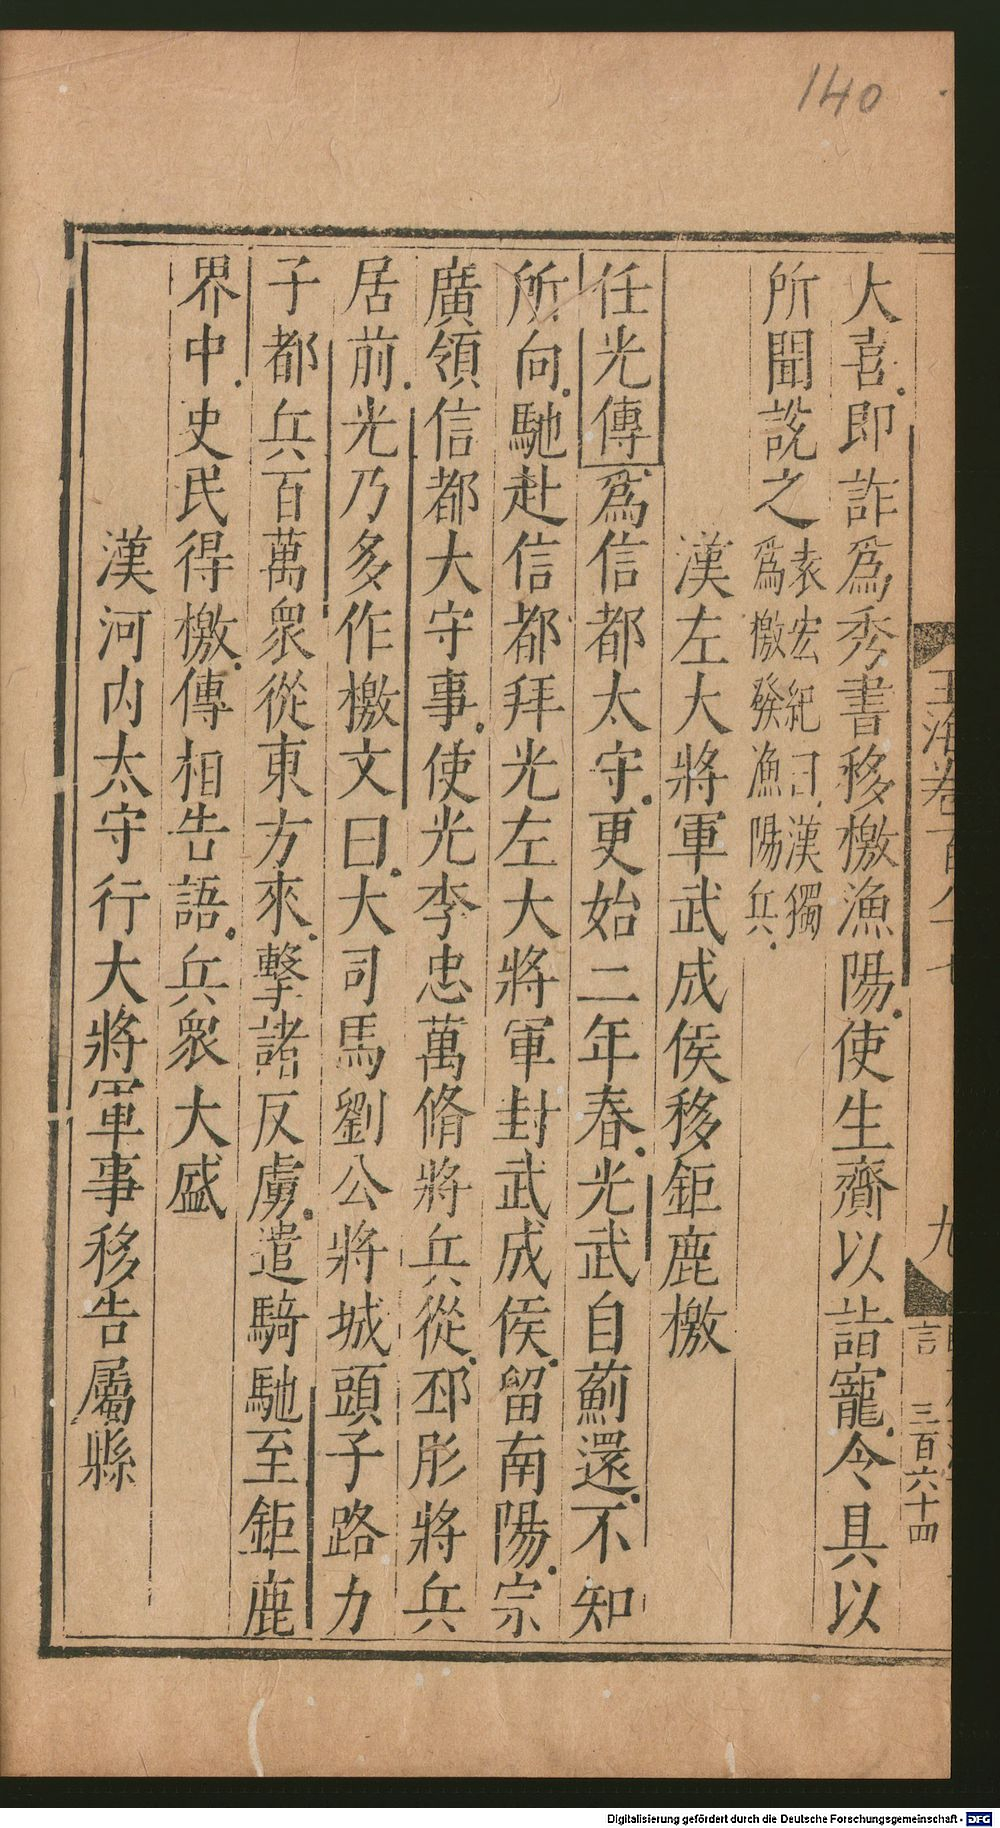 140
玉海卷一百八十七
九
言
三百六十四
大喜即詐爲秀書移檄漁陽使生齎以詣寵令具以
所聞說之袁宏紀曰漢獨
爲檄發漁陽兵
漢左大將軍武成侯移鉅鹿檄
任光傳爲信都太守更始二年春光武自薊還不知
所向馳赴信都拜光左大將軍封武成侯留南陽宗
廣領信都大守事使光李忠萬脩將兵從邳彤將兵
居前光乃多作檄文曰大司馬劉公將城頭子路力
子都兵百萬衆從東方來擊諸反虜遣騎馳至鉅鹿
界中吏民得檄傳相告語兵衆大盛
漢河内太守行大將軍事移告屬縣
Digitalisierung gefördert durch die Deutsche Forschungsgemeinschaft - DFG